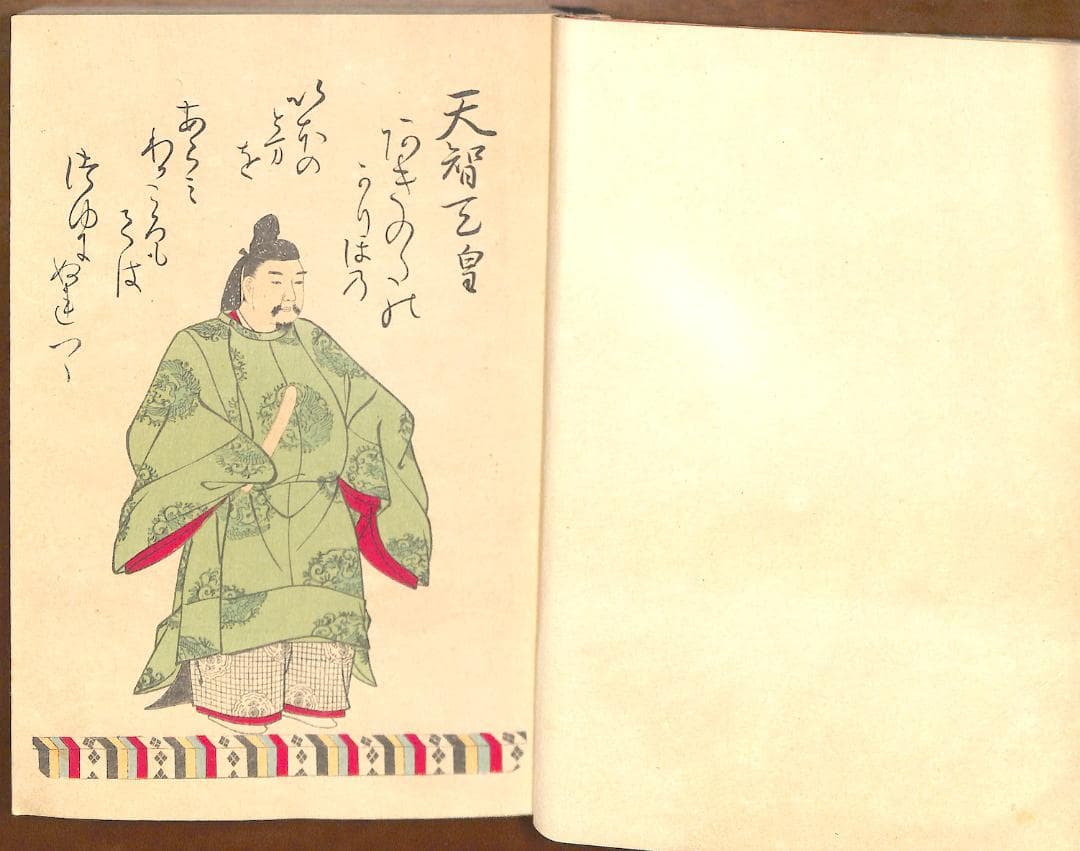 天智天皇
あきのたの
かりほの
いほの
とま
を
あらみ
わかころも
ては
つゆに
ぬれ
つゝ